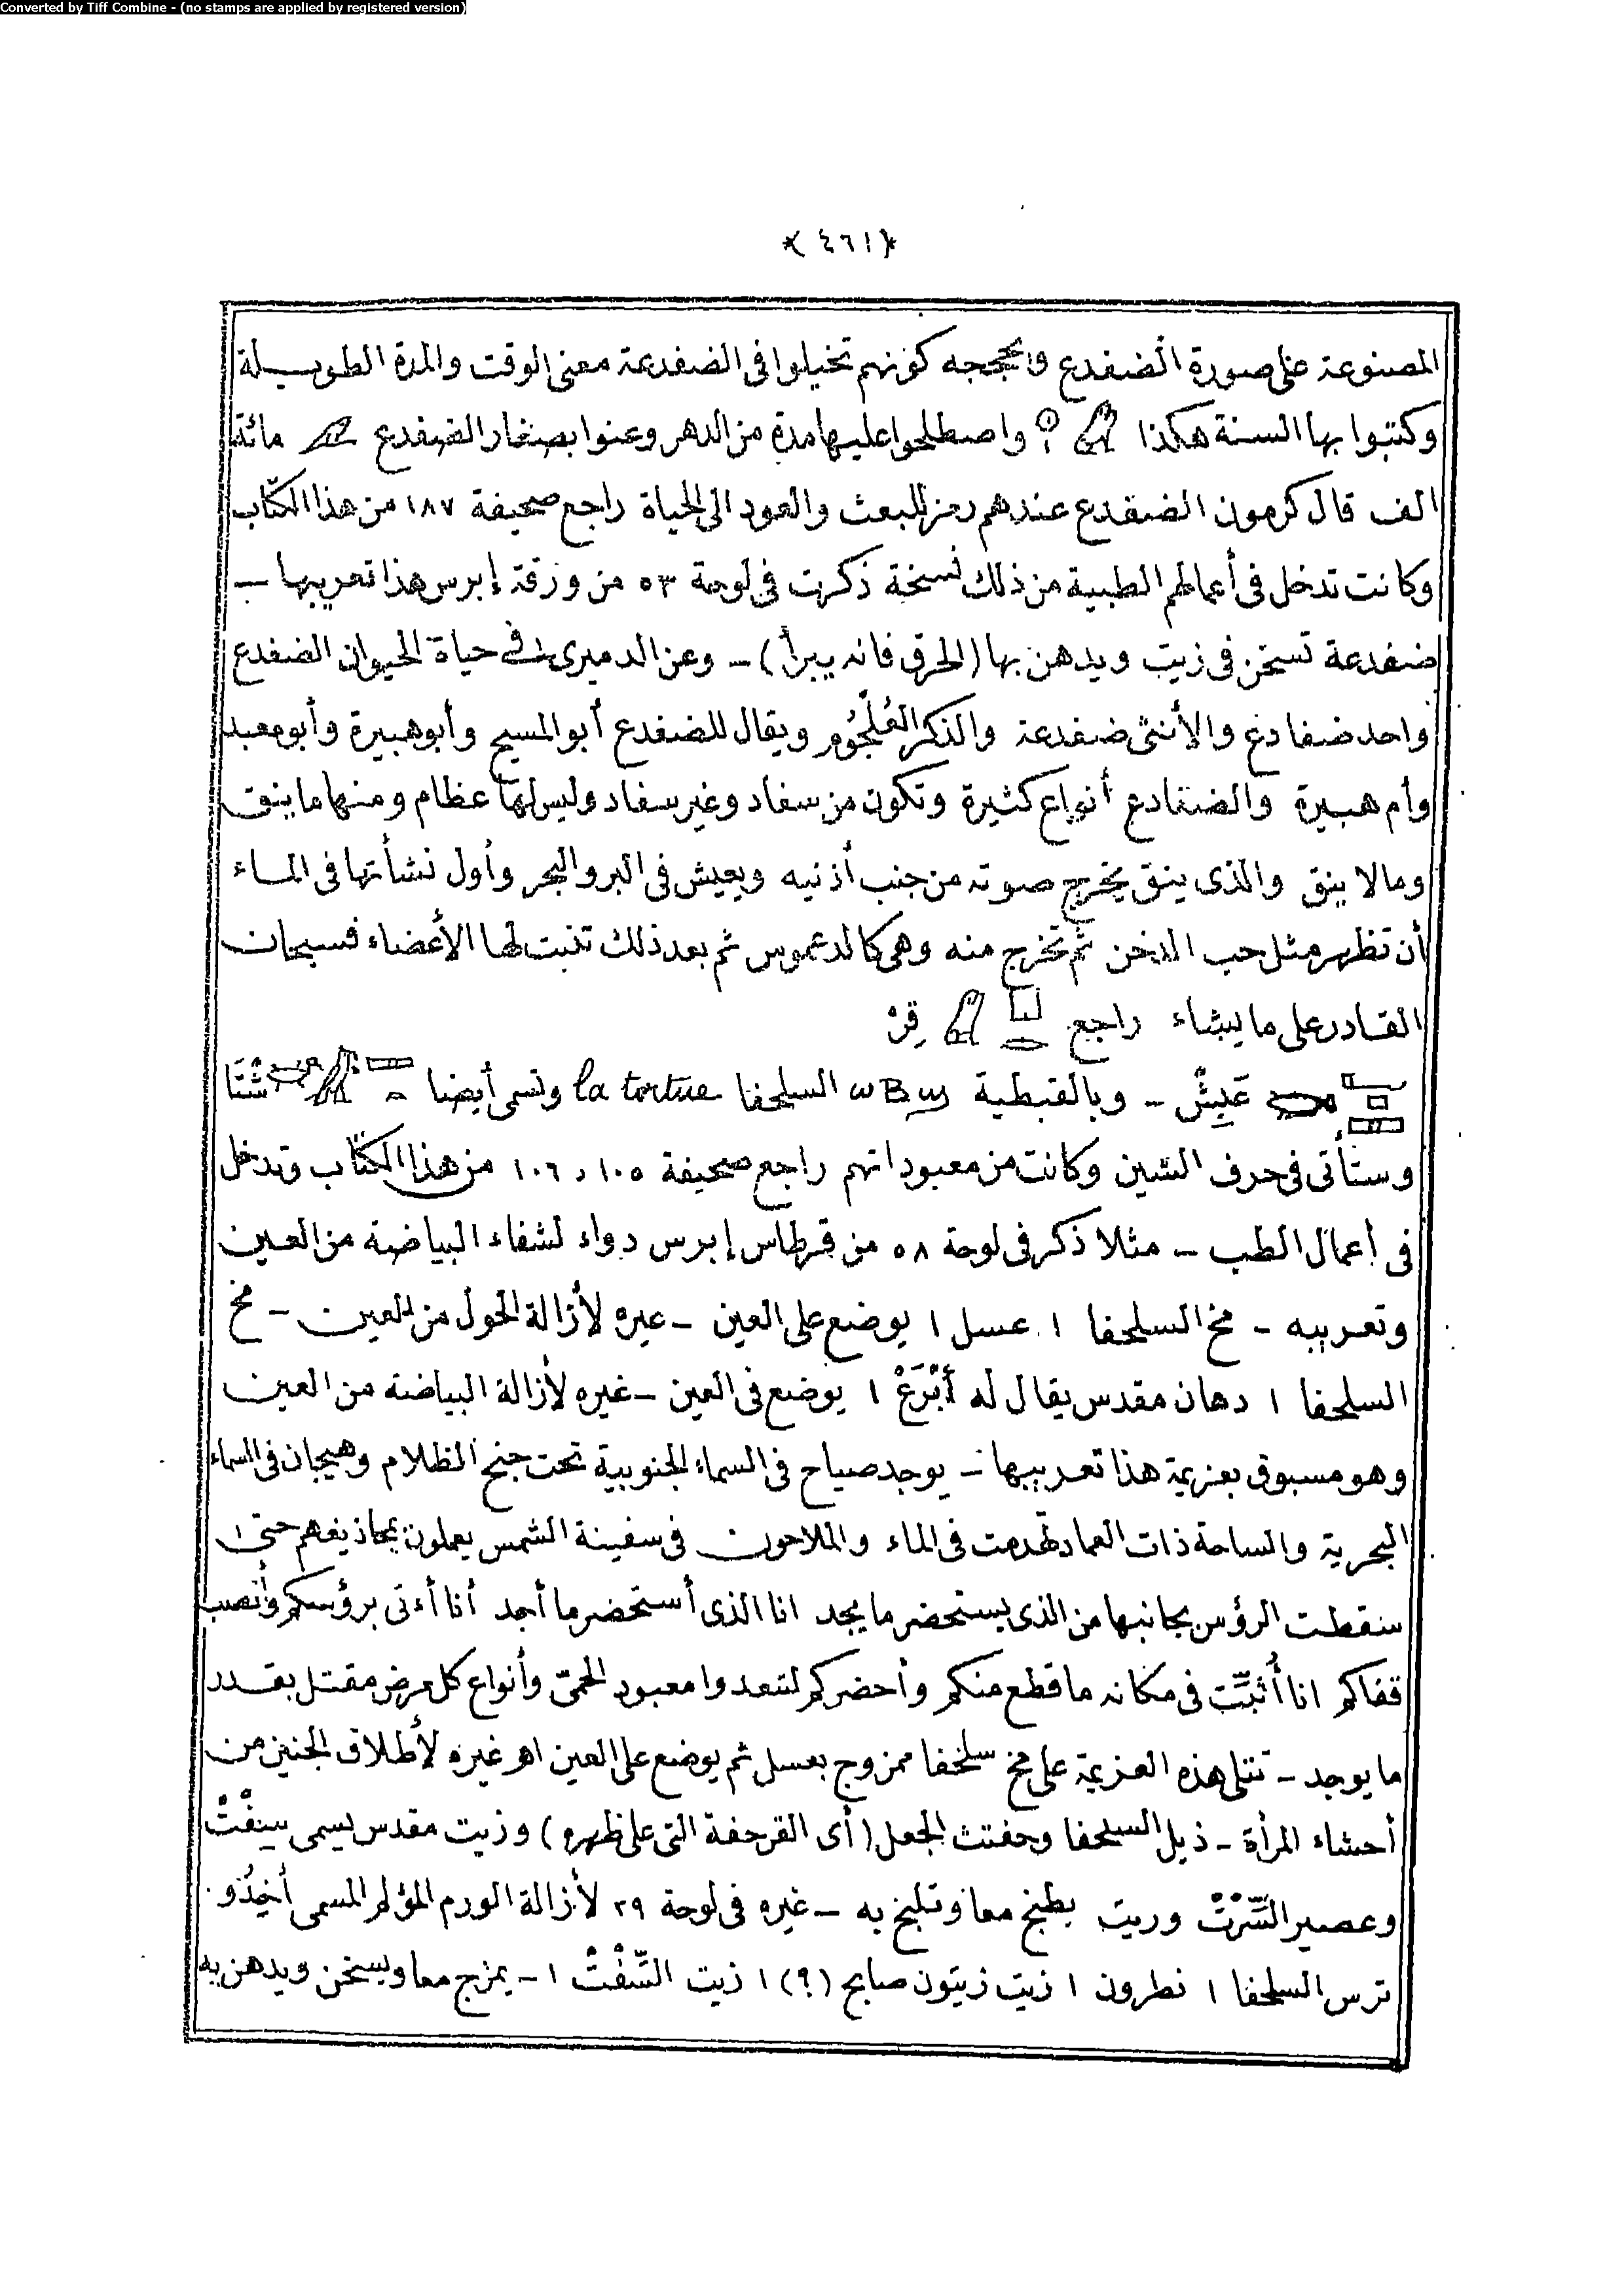 Converted by Tiff Combine - (no stamps are applied by registered version)
﴿٤٦١﴾
المصنوعة على صورة الضفدع كونهم تخيلوا فى الضفدعة معنى الوقت والمدة الطويلة
وكتبوا بها السنة هكذا واصطلحوا عليها مدة من الدهر وعنوا بصغار الضفدع مائة
الف قال كرمون الضفدع عندهم رمز للبعث والعود الى الحياة راجع صحيفة ١٨٧ من هذا الكتاب
وكانت تدخل فى أعمالهم الطبية من ذلك نسخة ذكرت فى لوحة ٥٣ من ورقة إبرس هذا تعريبها ــ
ضفدعة تسخن فى زيت ويدهن بها (الحرق فانه يبرأ) ــ وعن الدميرى فى حياة الحيوان الضفدع
واحد ضفادع والأنثى ضفدعة والذكر العُلْجُوم ويقال للضفدع أبو المسيح وأبو هبيرة وأبو معبد
وأم هبيرة والضفادع أنواع كثيرة وتكون من سفاد وغير سفاد وليس لها عظام ومنها ما ينق
وما لا ينق والذى ينق يخرج صوته من جنب أذنيه ويعيش فى البر والبحر وأول نشأتها فى الماء
أن تظهر مثل حب الدخن ثم تخرج منه وهى كالدعموس ثم بعد ذلك تنبت لها الأعضاء فسبحان
القادر على ما يشاء راجع قِرْ
عَبِشْ ــ وبالقبطية ⲱⲃϣ السلحفا la tortue وتسمى أيضا شْتَا
وستأتى فى حرف الشين وكانت من معبوداتهم راجع صحيفة ١٠٥ و ١٠٦ من هذا الكتاب وتدخل
فى أعمال الطب ــ مثلا ذكر فى لوحة ٥٨ من قرطاس إبرس دواء لشفاء البياضة من العين
وتعريبه ــ مخ السلحفا ١ عسل ١ يوضع على العين ــ غيره لأزالة الحول من العين ــ مخ
السلحفا ١ دهان مقدس يقال له أَبْرَعْ ١ يوضع فى العين ــ غيره لأزالة البياضة من العين
وهو مسبوق بعزيمة هذا تعريبها ــ يوجد صياح فى السماء الجنوبية تحت جنح الظلام وهيجان فى السماء
البحرية والساحة ذات العماد تهدمت فى الماء والملاحون فى سفينة الشمس يعملون بمجاذيفهم حتى
سقطت الرؤس بجانبها من الذى يستحضر ما يجد انا الذى أستحضر ما أجد أنا أءتى برؤسكم وأنصب
قفاكم انا أُثبِّت فى مكانه ما قطع منكم وأحضركم لتبعدوا معبود الحمىّ وأنواع كل مرض مقتل بقدر
ما يوجد ــ تتلى هذه العزيمة على مخ سلحفا ممزوج بعسل ثم يوضع على العين اهـ غيره لأطلاق الجنين من
أحشاء المرأة ــ ذيل السلحفا وجفتث الجعل (أى القرحفة التى على ظهره) وزيت مقدس يسمى سِفْتْ
وعصير السَّرْتْ وزيت يطبخ معا وتلبخ به ــ غيره فى لوحة ٢٩ لأزالة الورم المؤلم المسمى
ترس السلحفا ١ نطرون ١ زيت زيتون صابح (؟) ١ زيت السّفْتْ ١ ــ يمزج معا ويسخن ويدهن به